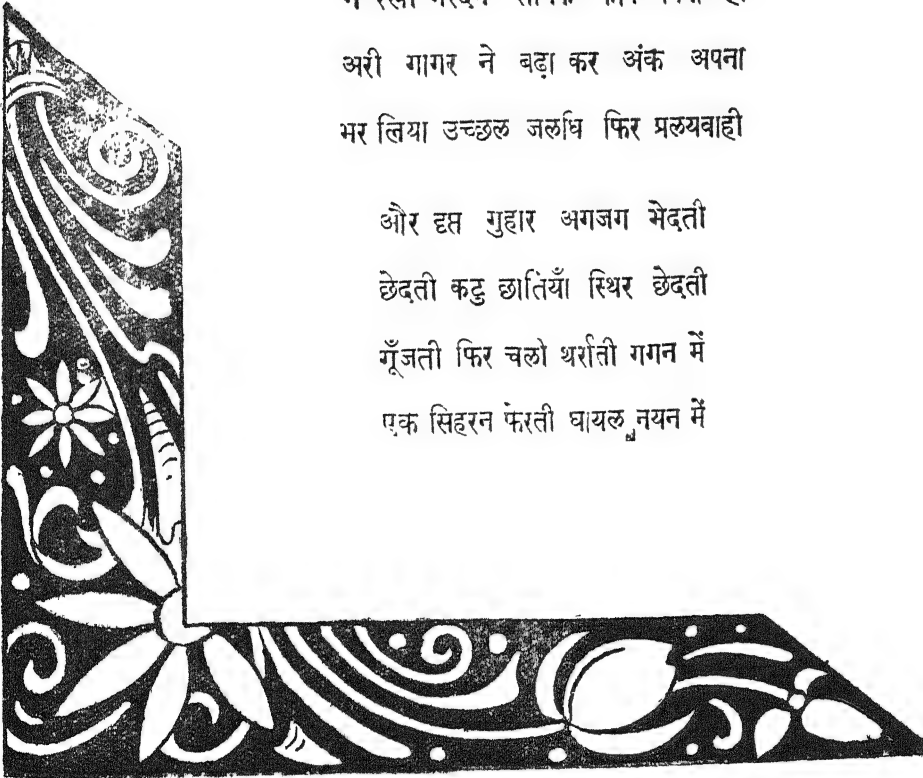 अरी गागर ने बढ़ा कर अंक अपना
भर लिया उच्छल जलधि फिर प्रलयवाही
और दृप्त गुहार अगजग भेदती
छेदती कटु छातियाँ स्थिर छेदती
गूँजती फिर चली थर्राती गगन में
एक सिहरन फेरती घायल नयन में